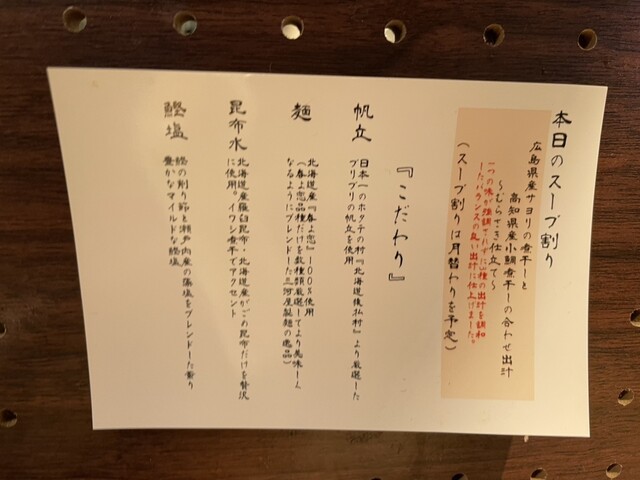 本日のスープ割り
広島県産サヨリの煮干しと
高知県産小鯛煮干しの合わせ出汁
～むらさき仕立て～
一つの味が強調せずに3種の出汁を調和
したバランスの良い出汁に仕上げました。
(スープ割りは月替わりを予定)
『こだわり』
帆立
日本一のホタテの村『北海道猿払村』より厳選した
プリプリの帆立を使用
麺
北海道産『春よ恋』100%使用
(春よ恋品種だけを数種類厳選してより美味しく
なるようにブレンドした三河屋製麺の逸品)
昆布水
北海道産羅臼昆布・北海道産がごめ昆布だけを贅沢
に使用。イワシ煮干でアクセント
鰹塩
鰹の削り節と瀬戸内産の藻塩をブレンドした香り
豊かなマイルドな鰹塩